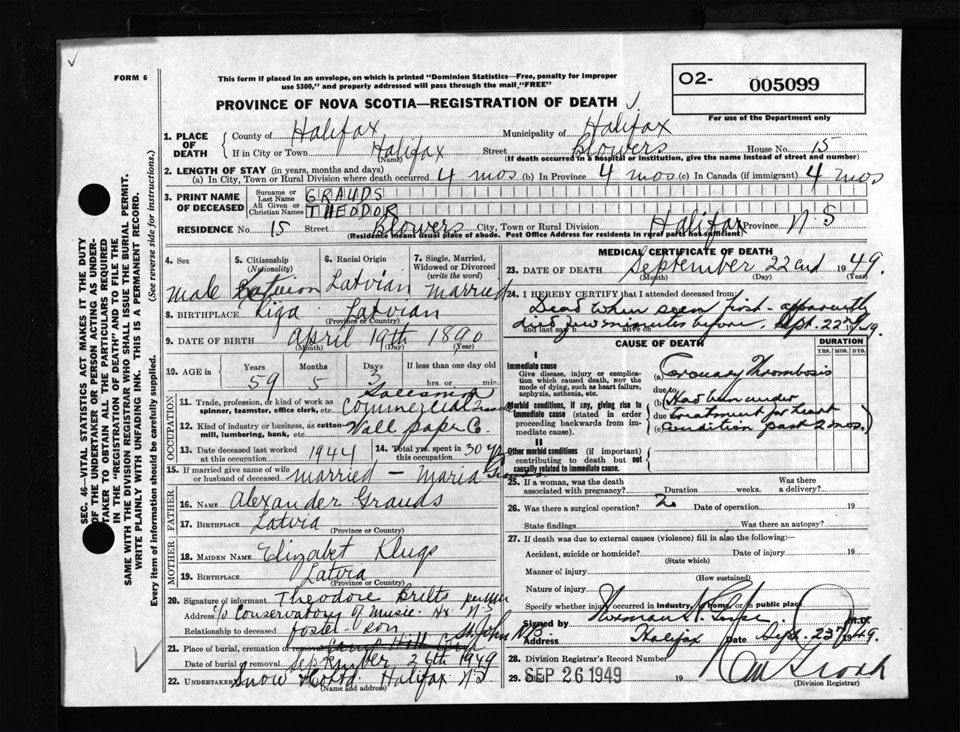 FORM 6
This form if placed in an envelope, on which is printed "Dominion Statistics—Free, penalty for improper
use $300," and properly addressed will pass through the mail "FREE"
O2- 005099
For use of the Department only
PROVINCE OF NOVA SCOTIA—REGISTRATION OF DEATH
1. PLACE OF DEATH
County of Halifax Municipality of Halifax
If in City or Town Halifax (Name) Street Blowers House No. 15
(If death occurred in a hospital or institution, give the name instead of street and number)
2. LENGTH OF STAY (in years, months and days)
(a) In City, Town or Rural Division where death occurred 4 mos (b) In Province 4 mos (c) In Canada (if immigrant) 4 mos
3. PRINT NAME OF DECEASED
Surname or Last Name GRAUDS
All Given or Christian Names THEODOR
RESIDENCE No 15 Street Blowers City, Town or Rural Division Halifax Province N.S
(Residence means usual place of abode. Post Office Address for residents in rural parts not sufficient)
4. Sex
male
5. Citizenship (Nationality)
Latvian
6. Racial Origin
Latvian
7. Single, Married, Widowed or Divorced (write the word)
married
8. BIRTHPLACE Riga Latvian
(Province or Country)
9. DATE OF BIRTH April 19th 1890
(Month) (Day) (Year)
10. AGE in Years 59 Months 5 Days 3 If less than one day old hrs. or min.
OCCUPATION
11. Trade, profession, or kind of work as spinner, teamster, office clerk, etc. Salesman Commercial
12. Kind of industry or business, as cotton-mill, lumbering, bank, etc. Wall paper Co.
13. Date deceased last worked at this occupation 1944
14. Total yrs. spent in this occupation 30 yr
15. If married give name of wife or husband of deceased married — Maria Grauds
FATHER
16. NAME Alexander Grauds
17. BIRTHPLACE Latvia
(Province or Country)
MOTHER
18. MAIDEN NAME Elizabet Klugs
19. BIRTHPLACE Latvia
(Province or Country)
20. Signature of informant Theodore Brilts
Address c/o Conservatory of Music. Hx N.S
Relationship to deceased foster-son
21. Place of burial, cremation or removal St. John N.B.
Date of burial or removal September 26th 1949
22. Undertaker Snow Halifax N S
(Name and address)
MEDICAL CERTIFICATE OF DEATH
23. DATE OF DEATH September 22nd 1949.
(Month) (Day)
24. I HEREBY CERTIFY that I attended deceased from:
Dead when seen first. apparently
and last saw died few minutes before. Sept. 22nd 1949.
CAUSE OF DEATH
DURATION
YRS. MOS. DYS.
I
Immediate cause
Give disease, injury or complication which caused death, not the mode of dying, such as heart failure, asphyxia, asthenia, etc.
(a) Coronary Thrombosis
due to
Morbid conditions, if any, giving rise to immediate cause (stated in order proceeding backwards from immediate cause).
(b) Had been under
due to treatment for heart
(c) condition past 2 mos.
II
Other morbid conditions (if important) contributing to death but not causally related to immediate cause.
25. If a woman, was the death associated with pregnancy? Duration weeks. Was there a delivery?
26. Was there a surgical operation? Date of operation 19
State findings Was there an autopsy?
27. If death was due to external causes (violence) fill in also the following:—
Accident, suicide or homicide? Date of injury 19
(State which)
Manner of injury
(How sustained)
Nature of injury
Specify whether injury occurred in industry, in home, or in public place
Signed by Norman M.D.
Address Halifax Date Sept. 23rd 1949.
28. Division Registrar's Record Number
29. Filed SEP 26 1949 19
(Division Registrar)
SEC. 46—VITAL STATISTICS ACT MAKES IT THE DUTY
OF THE UNDERTAKER OR PERSON ACTING AS UNDER-
TAKER TO OBTAIN ALL THE PARTICULARS REQUIRED
IN THE "REGISTRATION OF DEATH" AND TO FILE THE
SAME WITH THE DIVISION REGISTRAR WHO SHALL ISSUE THE BURIAL PERMIT.
WRITE PLAINLY WITH UNFADING INK. THIS IS A PERMANENT RECORD.
Every item of information should be carefully supplied. (See reverse side for instructions.)